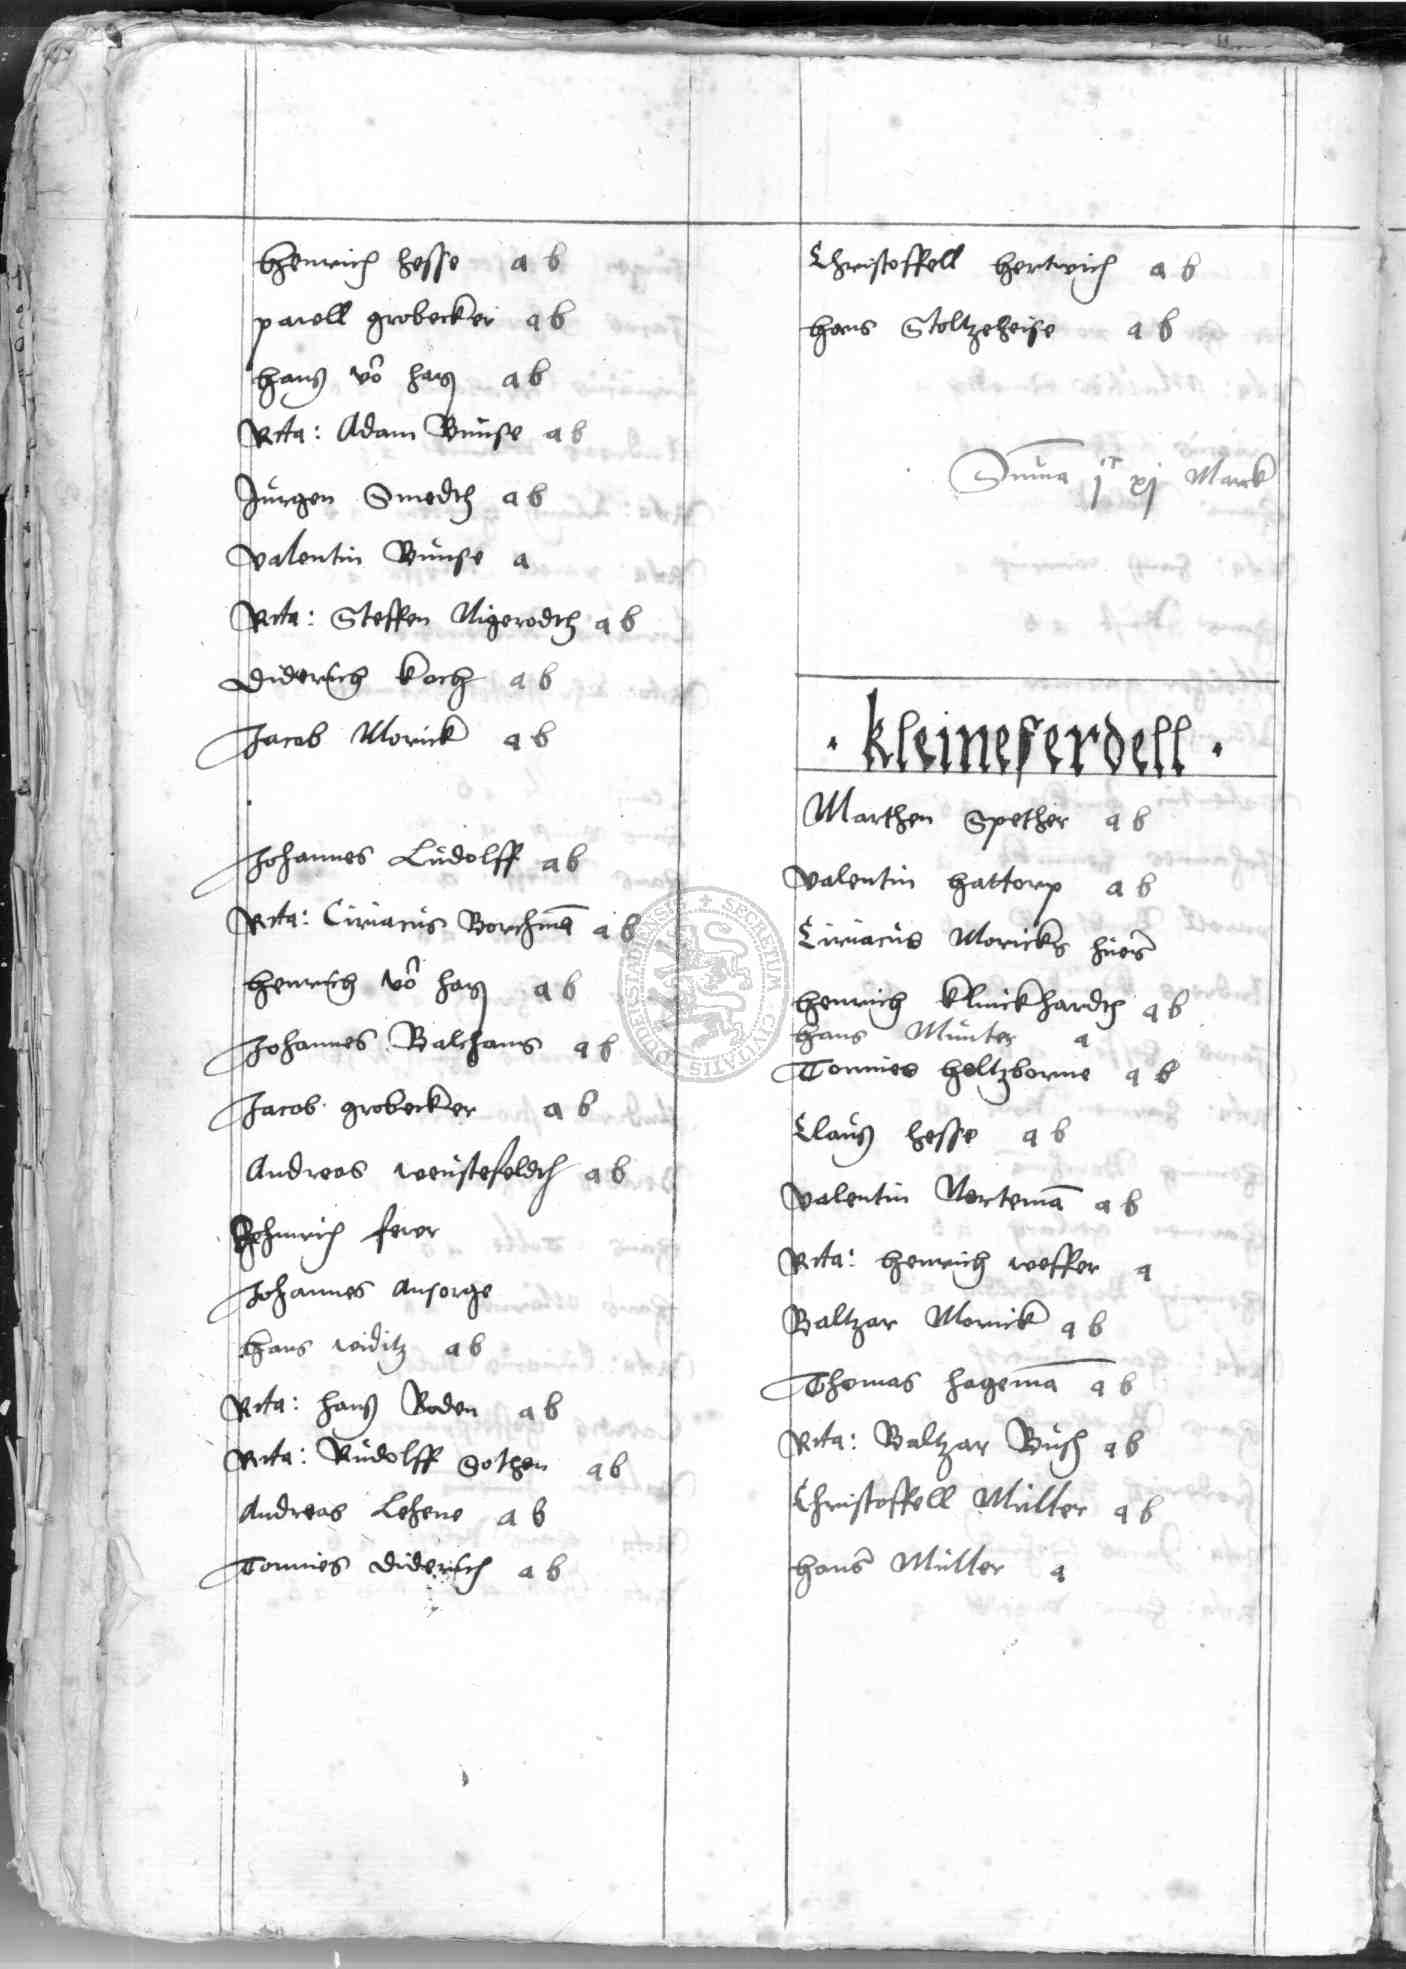 Henrich Hesse a b
pawell grobecker a b
Hans vō Hag a b
Rcta: Adam Bünse a b
Jürgen Smedth a b
Valentin Bünse a
Rcta: Steffen Nigerodth a b
Diderich Koch a b
Jacob Morick a b
Johannes Lüdolff a b
Rcta: Ciriacüs Borchmā a b
Henrich vō Hag a b
Johannes Balthans a b
Jacob grobecker a b
Andreas weüstefeldth a b
Johannes Ansorge
Hans widitz a b
Rcta: Hans Boden a b
Rcta: Rüdolff Sothen a b
Andreas Lehene a b
Tonnies Diderich a b
Christoffell Hertwich a b
Hans Stoltzeheise a b
Suma xj Marck
· kleineferdell ·
Marthen Spether a b
Valentin Hattorp a b
Ciriacüs Moricks
Henrich Klinckhardth a b
Hans Münter a
Tonnies Holtzborne a b
Claüs Hesse a b
Valentin Nortemā a b
Rcta: Henrich weffer a
Baltzar Morick a b
Thomas Hagemā a b
Rcta: Baltzar Büsch a b
Christoffell Müller a b
Hans Müller a
SECRETUM CIVITATIS DUDERSTADIENSIS